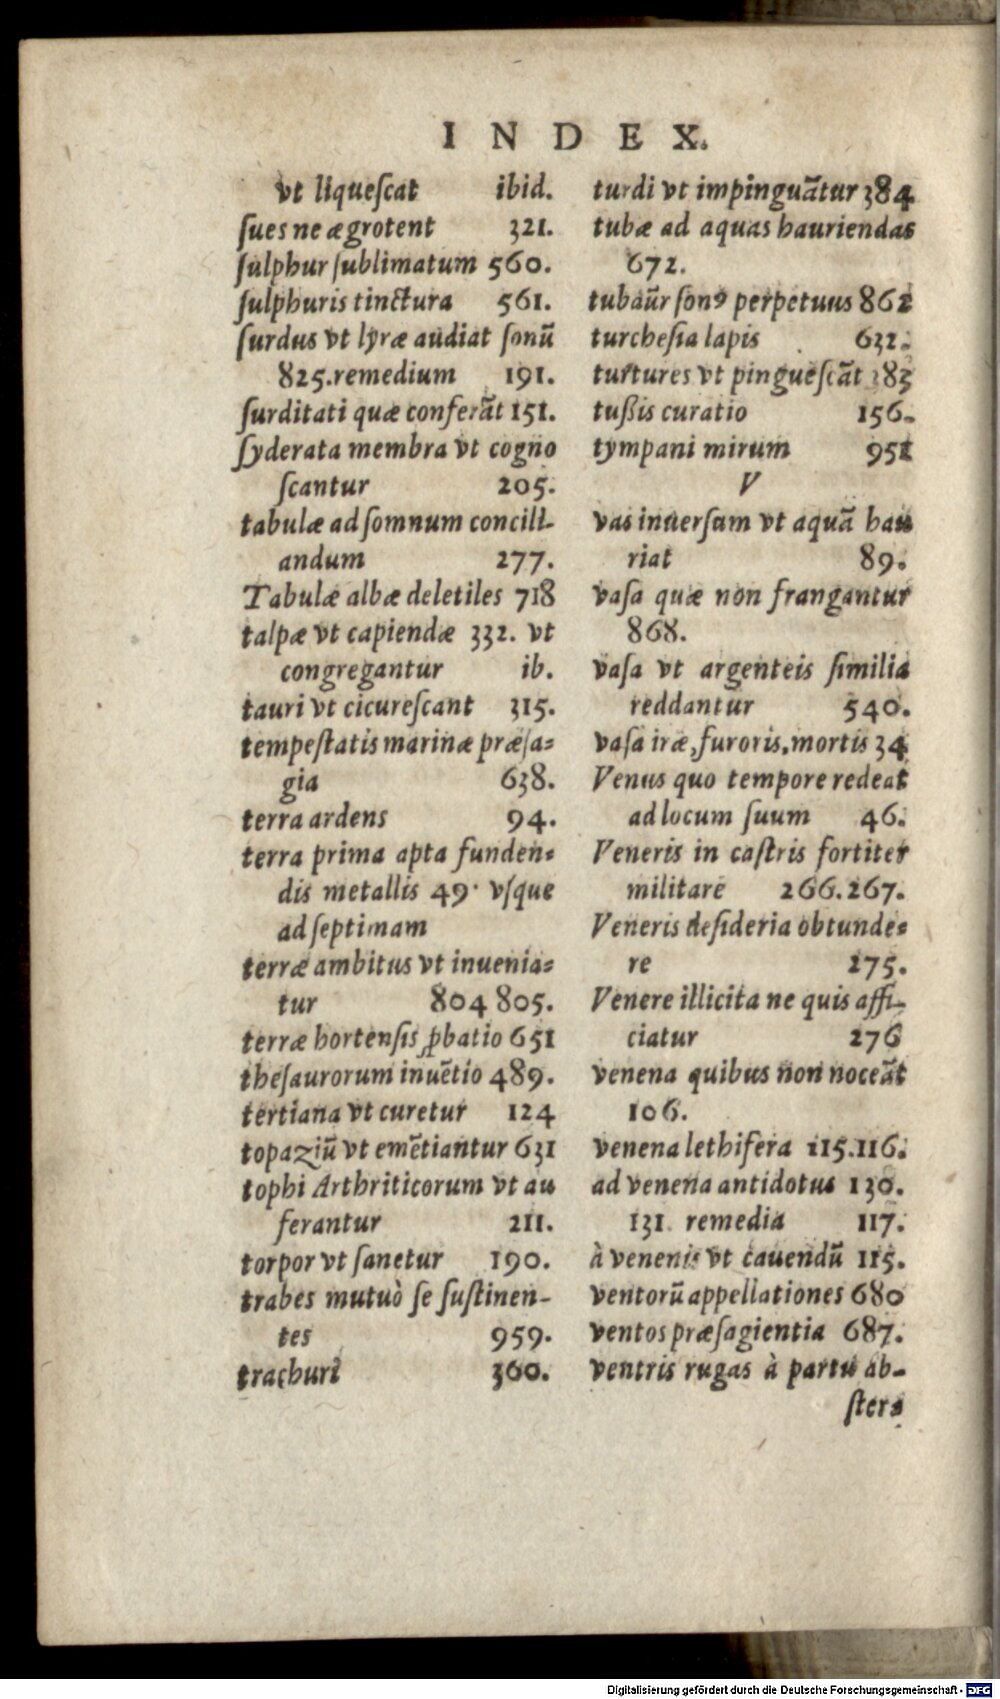 INDEX.
vt liqueſcat ibid.
ſues ne ægrotent 321.
ſulphur ſublimatum 560.
ſulphuris tinctura 561.
ſurdus vt lyræ audiat ſonū
825. remedium 191.
ſurditati quæ conferāt 151.
ſyderata membra vt cogno
ſcantur 205.
tabulæ ad ſomnum concili-
andum 277.
Tabulæ albæ deletiles 718
talpæ vt capiendæ 332. vt
congregantur ib.
tauri vt cicureſcant 315.
tempeſtatis marinæ præſa-
gia 638.
terra ardens 94.
terra prima apta funden-
dis metallis 49. vſque
ad ſeptimam
terræ ambitus vt inuenia-
tur 804 805.
terræ hortenſis ꝓbatio 651
theſaurorum inuētio 489.
tertiana vt curetur 124
topaziū vt emētiantur 631
tophi Arthriticorum vt au
ferantur 211.
torpor vt ſanetur 190.
trabes mutuò ſe ſuſtinen-
tes 959.
trachuri 360.
turdi vt impinguātur 384
tubæ ad aquas hauriendas
672.
tubaūr ſonꝰ perpetuus 862
turcheſia lapis 632.
turtures vt pingueſcāt 383
tuſsis curatio 156.
tympani mirum 951
V
vas inuerſum vt aquā hau
riat 89.
vaſa quæ non frangantur
868.
vaſa vt argenteis ſimilia
reddantur 540.
vaſa iræ, furoris, mortis 34
Venus quo tempore redeat
ad locum ſuum 46.
Veneris in caſtris fortiter
militare 266.267.
Veneris deſideria obtunde-
re 275.
Venere illicita ne quis affi-
ciatur 276
venena quibus non noceāt
106.
venena lethifera 115.116.
ad venena antidotus 130.
131 remedia 117.
à venenis vt cauendū 115.
ventorū appellationes 680
ventos præſagientia 687.
ventris rugas à partu ab-
ſterg
Digitalisierung gefördert durch die Deutsche Forschungsgemeinschaft - DFG